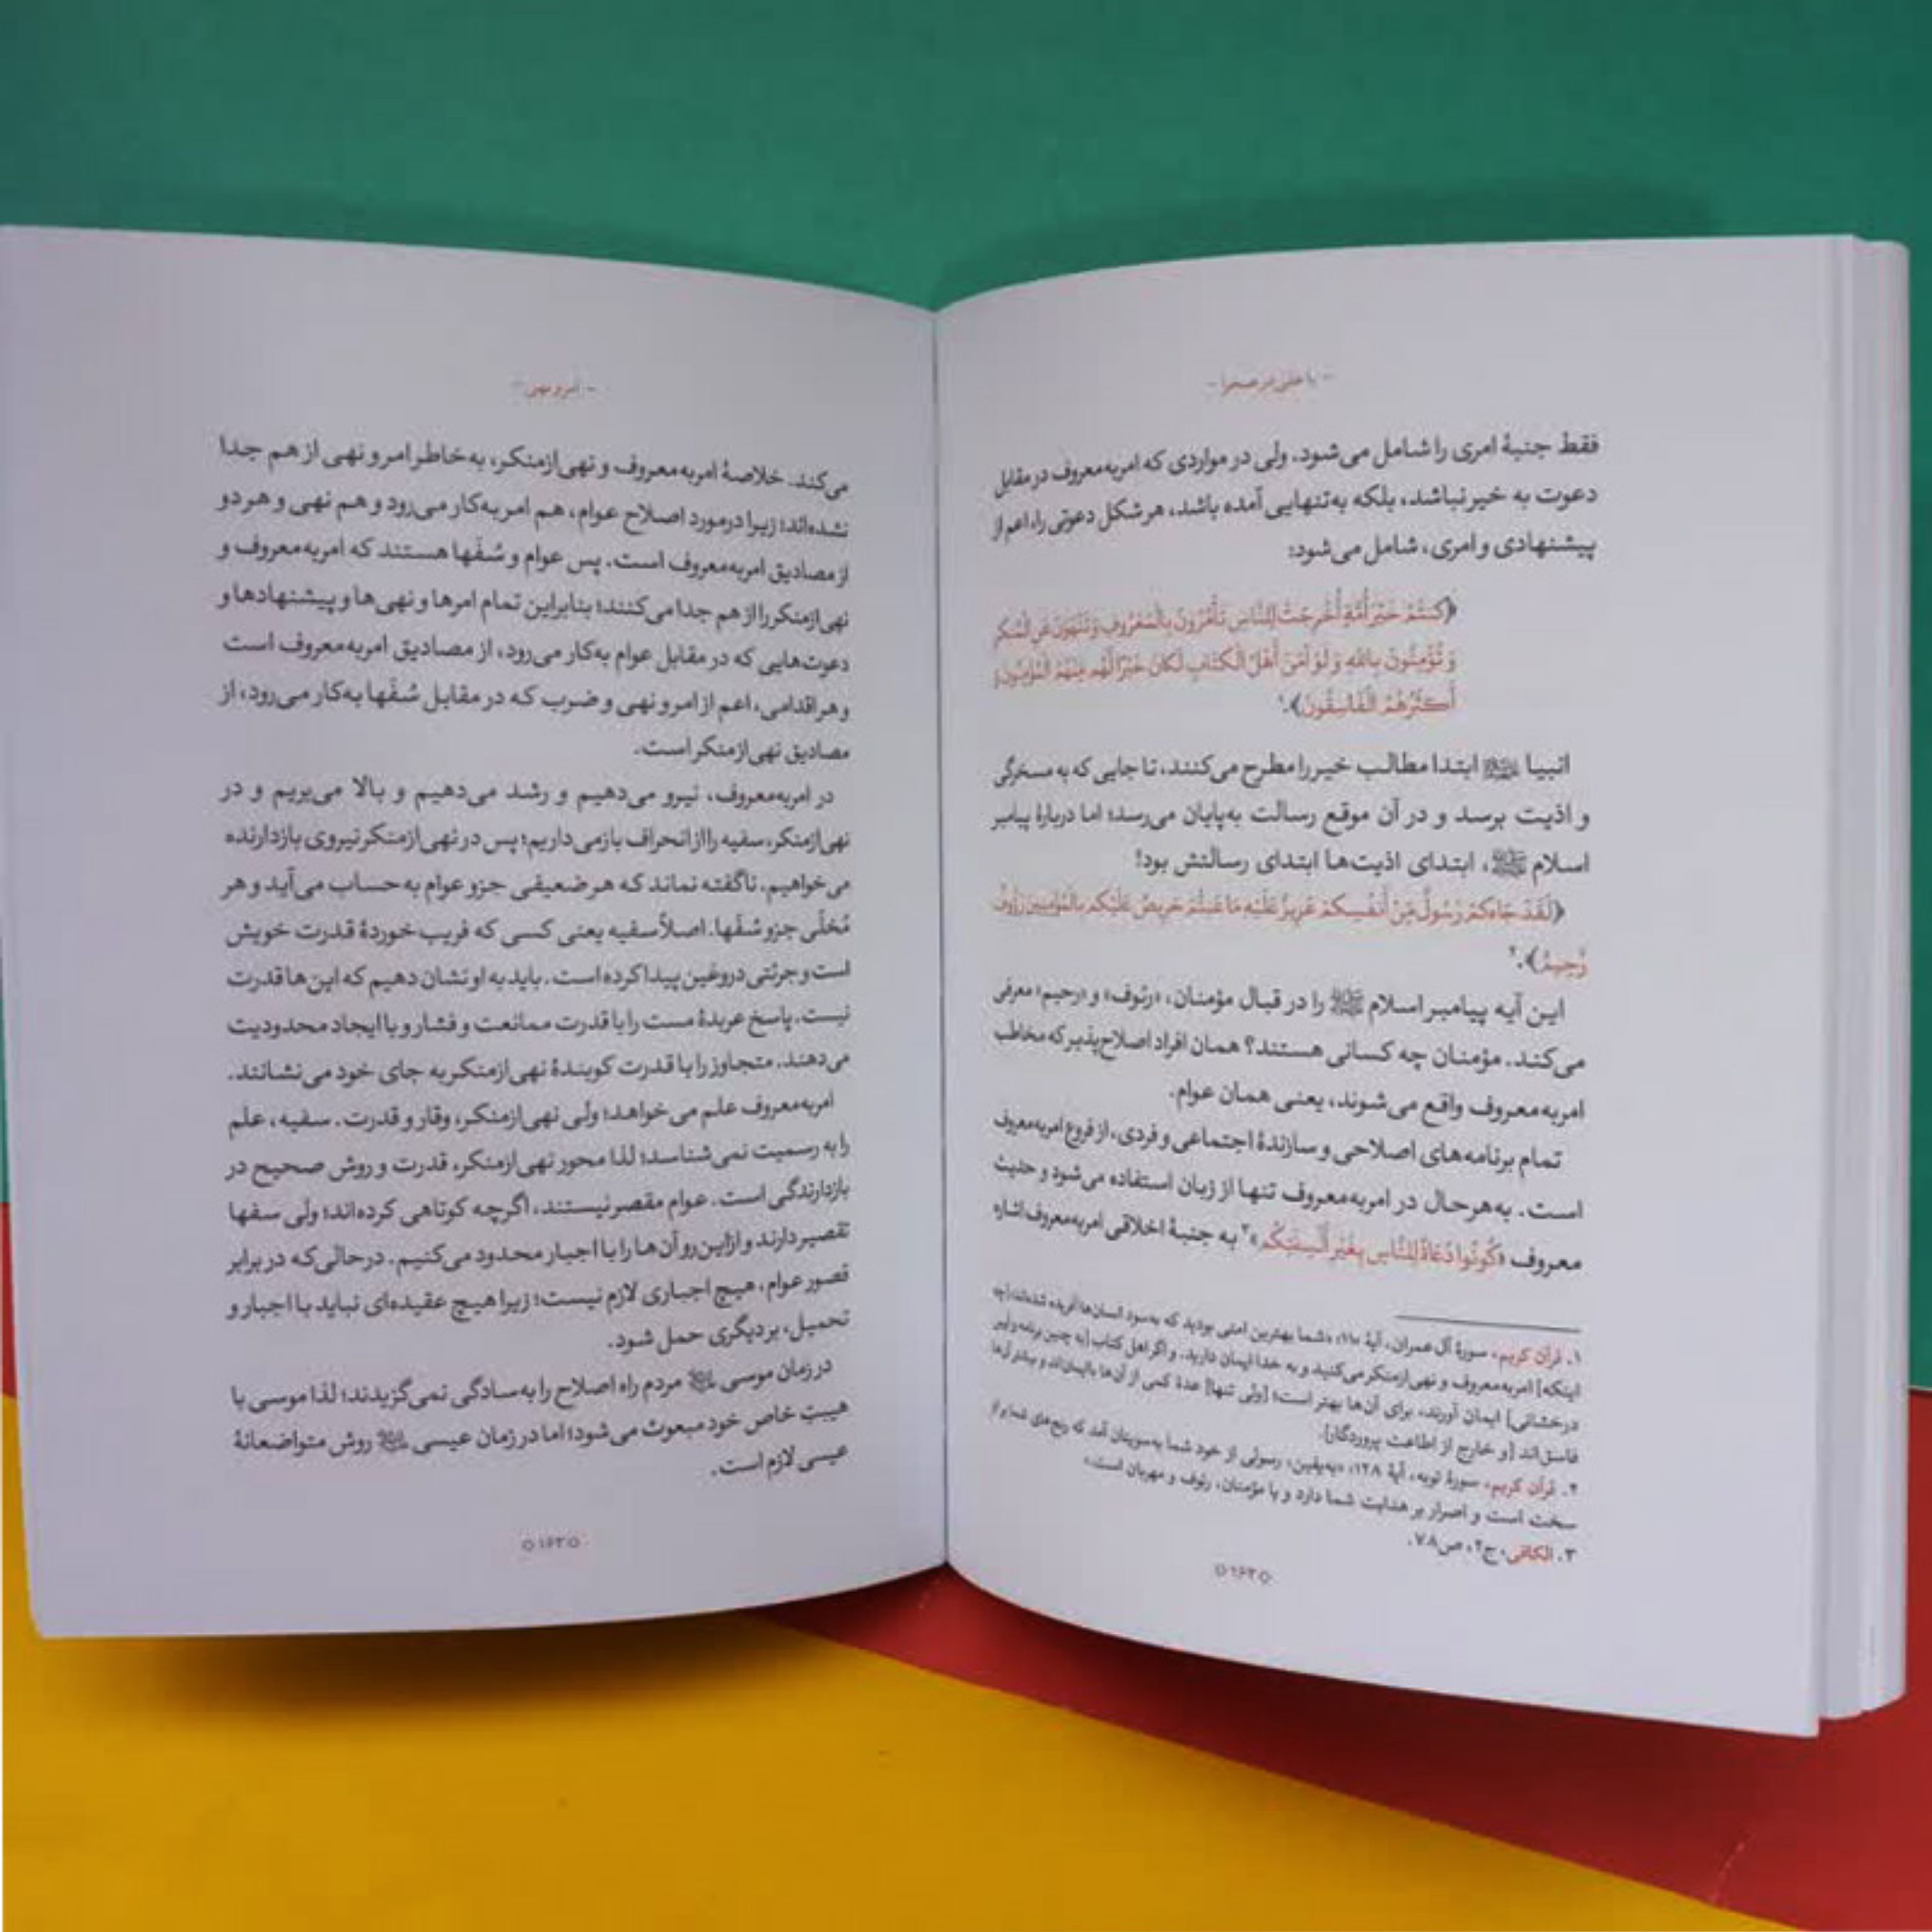 - با علی در صحرا -
فقط جنبهٔ امری را شامل می‌شود. ولی در مواردی که امربه‌معروف در مقابل
دعوت به خیر نباشد، بلکه به‌تنهایی آمده باشد، هر شکل دعوتی را، اعم از
پیشنهادی و امری، شامل می‌شود:
﴿كُنتُمْ خَيْرَ أُمَّةٍ أُخْرِجَتْ لِلنَّاسِ تَأْمُرُونَ بِالْمَعْرُوفِ وَ تَنْهَوْنَ عَنِ الْمُنكَرِ
وَ تُؤْمِنُونَ بِاللَّهِ وَ لَوْ آمَنَ أَهْلُ الْكِتَابِ لَكَانَ خَيْرًا لَّهُم مِّنْهُمُ الْمُؤْمِنُونَ وَ
أَكْثَرُهُمُ الْفَاسِقُونَ﴾.¹
انبیا ابتدا مطالب خیر را مطرح می‌کنند، تا جایی که به مسخرگی
و اذیت برسد و در آن موقع رسالت به‌پایان می‌رسد؛ اما دربارهٔ پیامبر
اسلام ﷺ، ابتدای اذیت‌ها ابتدای رسالتش بود!
﴿لَقَدْ جَاءَكُمْ رَسُولٌ مِّنْ أَنفُسِكُمْ عَزِيزٌ عَلَيْهِ مَا عَنِتُّمْ حَرِيصٌ عَلَيْكُم بِالْمُؤْمِنِينَ رَؤُوفٌ
رَّحِيمٌ﴾.²
این آیه پیامبر اسلام ﷺ را در قبال مؤمنان، «رئوف» و «رحیم» معرفی
می‌کند. مؤمنان چه کسانی هستند؟ همان افراد اصلاح‌پذیر که مخاطب
امربه‌معروف واقع می‌شوند، یعنی همان عوام.
تمام برنامه‌های اصلاحی و سازندهٔ اجتماعی و فردی، از فروع امربه‌معروف
است. به‌هرحال در امربه‌معروف تنها از زبان استفاده می‌شود و حدیث
معروف «كُونُوا دُعَاةً لِلنَّاسِ بِغَيْرِ أَلْسِنَتِكُم»³ به جنبهٔ اخلاقی امربه‌معروف اشاره
۱. قرآن کریم، سورهٔ آل عمران، آیهٔ ۱۱۰؛ «شما بهترین امتی بودید که به‌سود انسان‌ها آفریده شده‌اند؛ [چه
اینکه] امربه‌معروف و نهی‌ازمنکر می‌کنید و به خدا ایمان دارید. و اگر اهل کتاب [به چنین برنامه و آیین
درخشانی] ایمان آورند، برای آن‌ها بهتر است؛ [ولی تنها] عدهٔ کمی از آن‌ها باایمان‌اند و بیشتر آن‌ها
فاسق‌اند [و خارج از اطاعت پروردگار].
۲. قرآن کریم، سورهٔ توبه، آیهٔ ۱۲۸؛ «به‌یقین، رسولی از خود شما به‌سویتان آمد که رنج‌های شما بر او
سخت است و اصرار بر هدایت شما دارد و با مؤمنان، رئوف و مهربان است.»
۳. الکافی، ج۲، ص۷۸.
۱۶۲
- امر و نهی -
می‌کند. خلاصهٔ امربه‌معروف و نهی‌ازمنکر، به‌خاطر امر و نهی از هم جدا
نشده‌اند؛ زیرا درمورد اصلاح عوام، هم امر به‌کار می‌رود و هم نهی و هر دو
از مصادیق امربه‌معروف است. پس عوام و سُفَها هستند که امربه‌معروف و
نهی‌ازمنکر را از هم جدا می‌کنند؛ بنابراین تمام امرها و نهی‌ها و پیشنهادها و
دعوت‌هایی که در مقابل عوام به‌کار می‌رود، از مصادیق امربه‌معروف است
و هر اقدامی، اعم از امر و نهی و ضرب که در مقابل سُفَها به‌کار می‌رود، از
مصادیق نهی‌ازمنکر است.
در امربه‌معروف، نیرو می‌دهیم و رشد می‌دهیم و بالا می‌بریم و در
نهی‌ازمنکر، سفیه را از انحراف بازمی‌داریم؛ پس در نهی‌ازمنکر نیروی بازدارنده
می‌خواهیم. ناگفته نماند که هر ضعیفی جزو عوام به حساب می‌آید و هر
مُخلّی جزو سُفَها. اصلاً سفیه یعنی کسی که فریب خوردهٔ قدرت خویش
است و جرئتی دروغین پیدا کرده است. باید به او نشان دهیم که این‌ها قدرت
نیست. پاسخ عربدهٔ مست را با قدرت ممانعت و فشار و با ایجاد محدودیت
می‌دهند. متجاوز را با قدرت کوبندهٔ نهی‌ازمنکر به جای خود می‌نشانند.
امربه‌معروف علم می‌خواهد؛ ولی نهی‌ازمنکر، وقار و قدرت. سفیه، علم
را به رسمیت نمی‌شناسد؛ لذا محور نهی‌ازمنکر، قدرت و روش صحیح در
بازدارندگی است. عوام مقصر نیستند، اگرچه کوتاهی کرده‌اند؛ ولی سفها
تقصیر دارند و ازاین‌رو آن‌ها را با اجبار محدود می‌کنیم. درحالی‌که در برابر
قصور عوام، هیچ اجباری لازم نیست؛ زیرا هیچ عقیده‌ای نباید با اجبار و
تحمیل، بر دیگری حمل شود.
در زمان موسی مردم راه اصلاح را به‌سادگی نمی‌گزیدند؛ لذا موسی با
هیبتِ خاص خود مبعوث می‌شود؛ اما در زمان عیسی روش متواضعانهٔ
عیسی لازم است.
۱۶۳